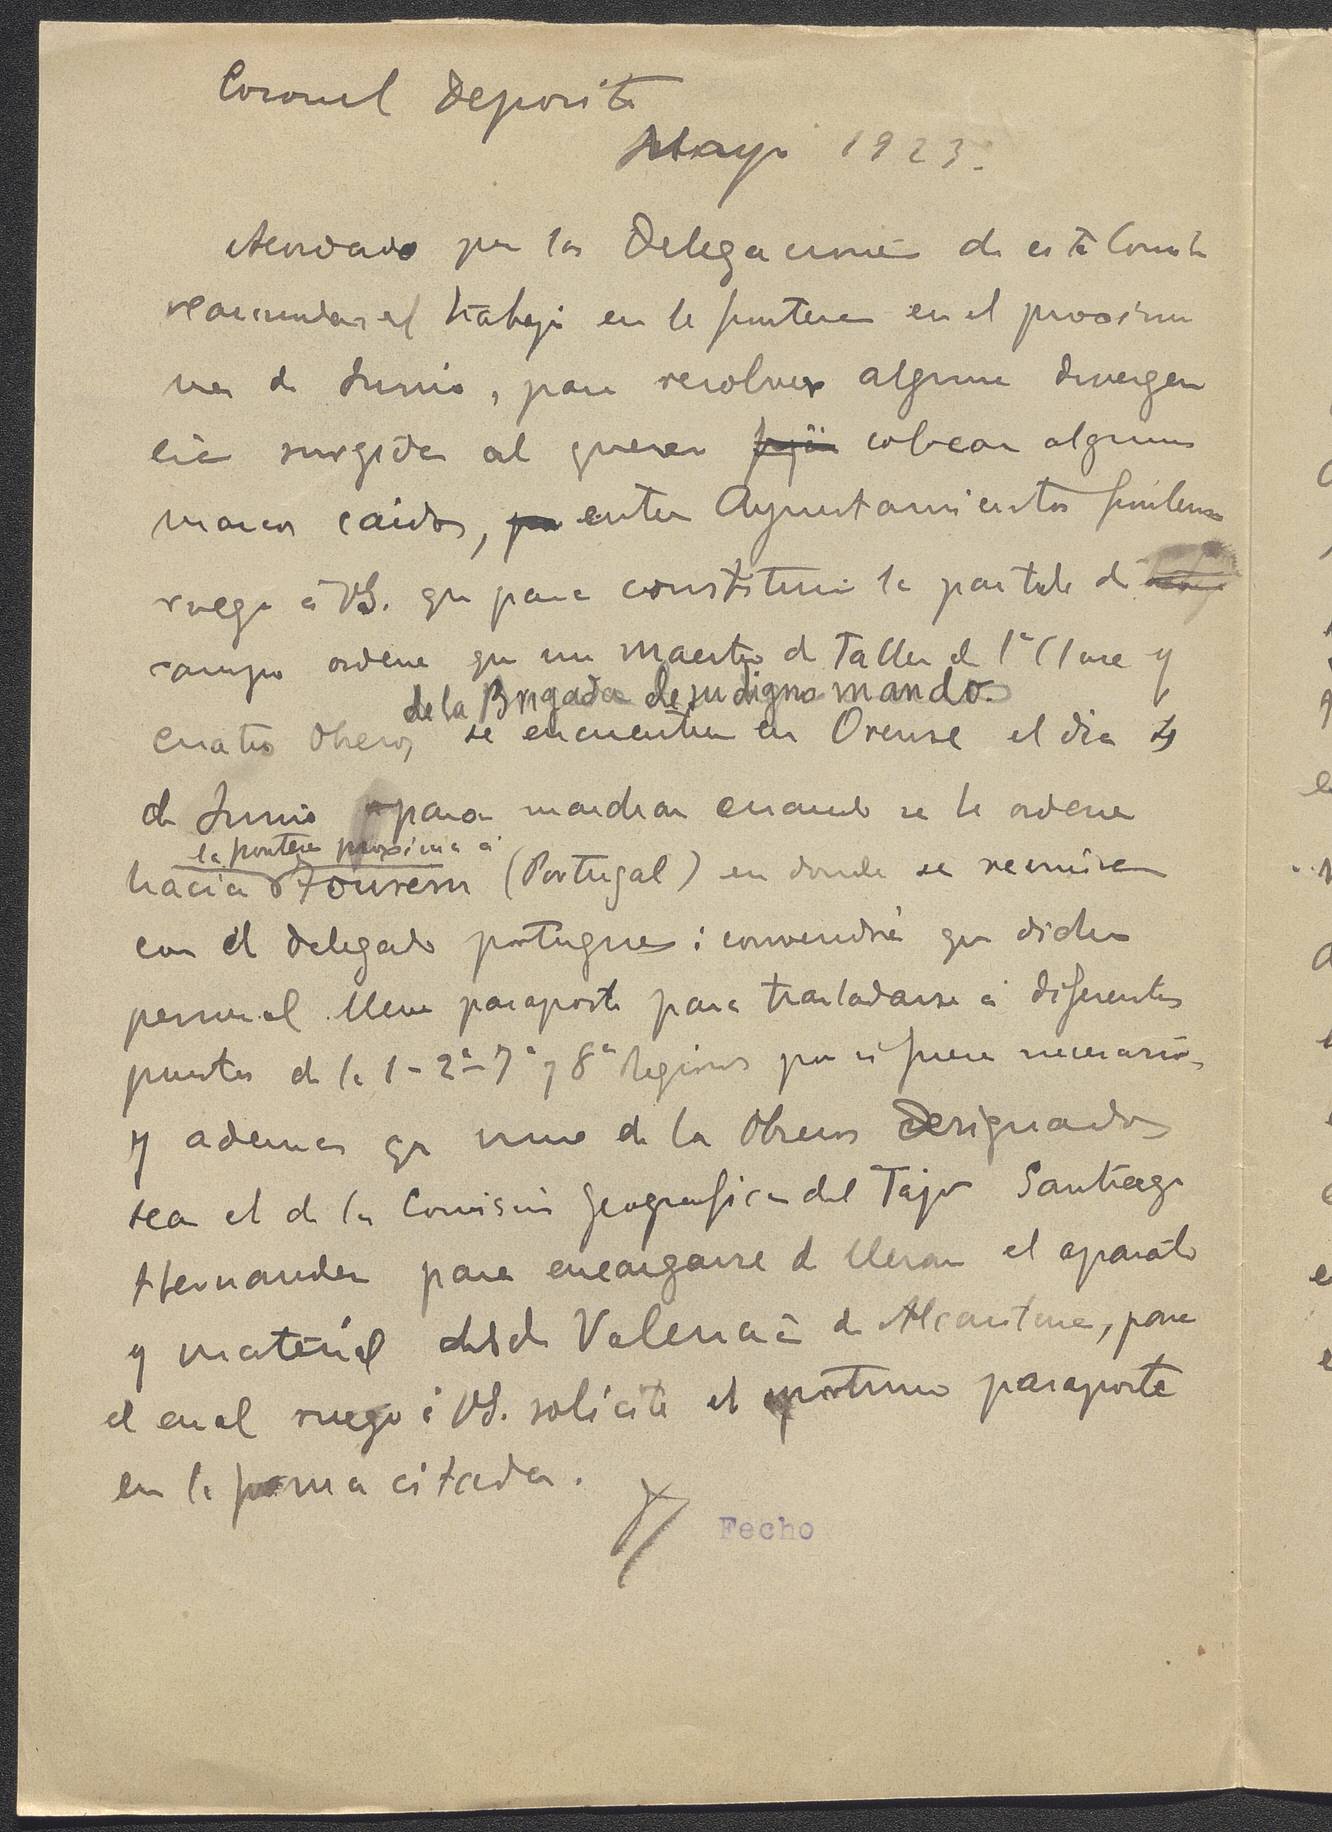 Coronel Deposito
Mayo 1923.
Acordado por las Delegaciones de este Comite
reanundar el trabajo en la frontera en el proximo
mes de Junio, para resolver alguna divergen
cia surgida al querer colocar algunos
marcos caidos, entre Ayuntamientos fronterizos
ruego á VS. que para constituir la partida de
campo ordene que un Maestro de Taller de 1ª Clase y
de la Brigada de su digno mando.
cuatro Obreros se encuentren en Orense el dia 4
de Junio para marchar cuando se le ordene
la frontera proxima á
hacia Tourem (Portugal) en donde se reunira
con el delegado portugues; convendrá que dicho
personal lleve pasaporte para trasladarse á diferentes
puntos de la 1ª-2ª-7ª y 8ª Regiones por si fuera necesario,
y ademas que uno de los Obreros designados
sea el de la Comision Geografica del Tajo Santiago
Hernandez para encargarse de llevar el aparato
y material desde Valencia de Alcantara, para
el cual ruego á VS. solicite el oportuno pasaporte
en la forma citada.
Fecho